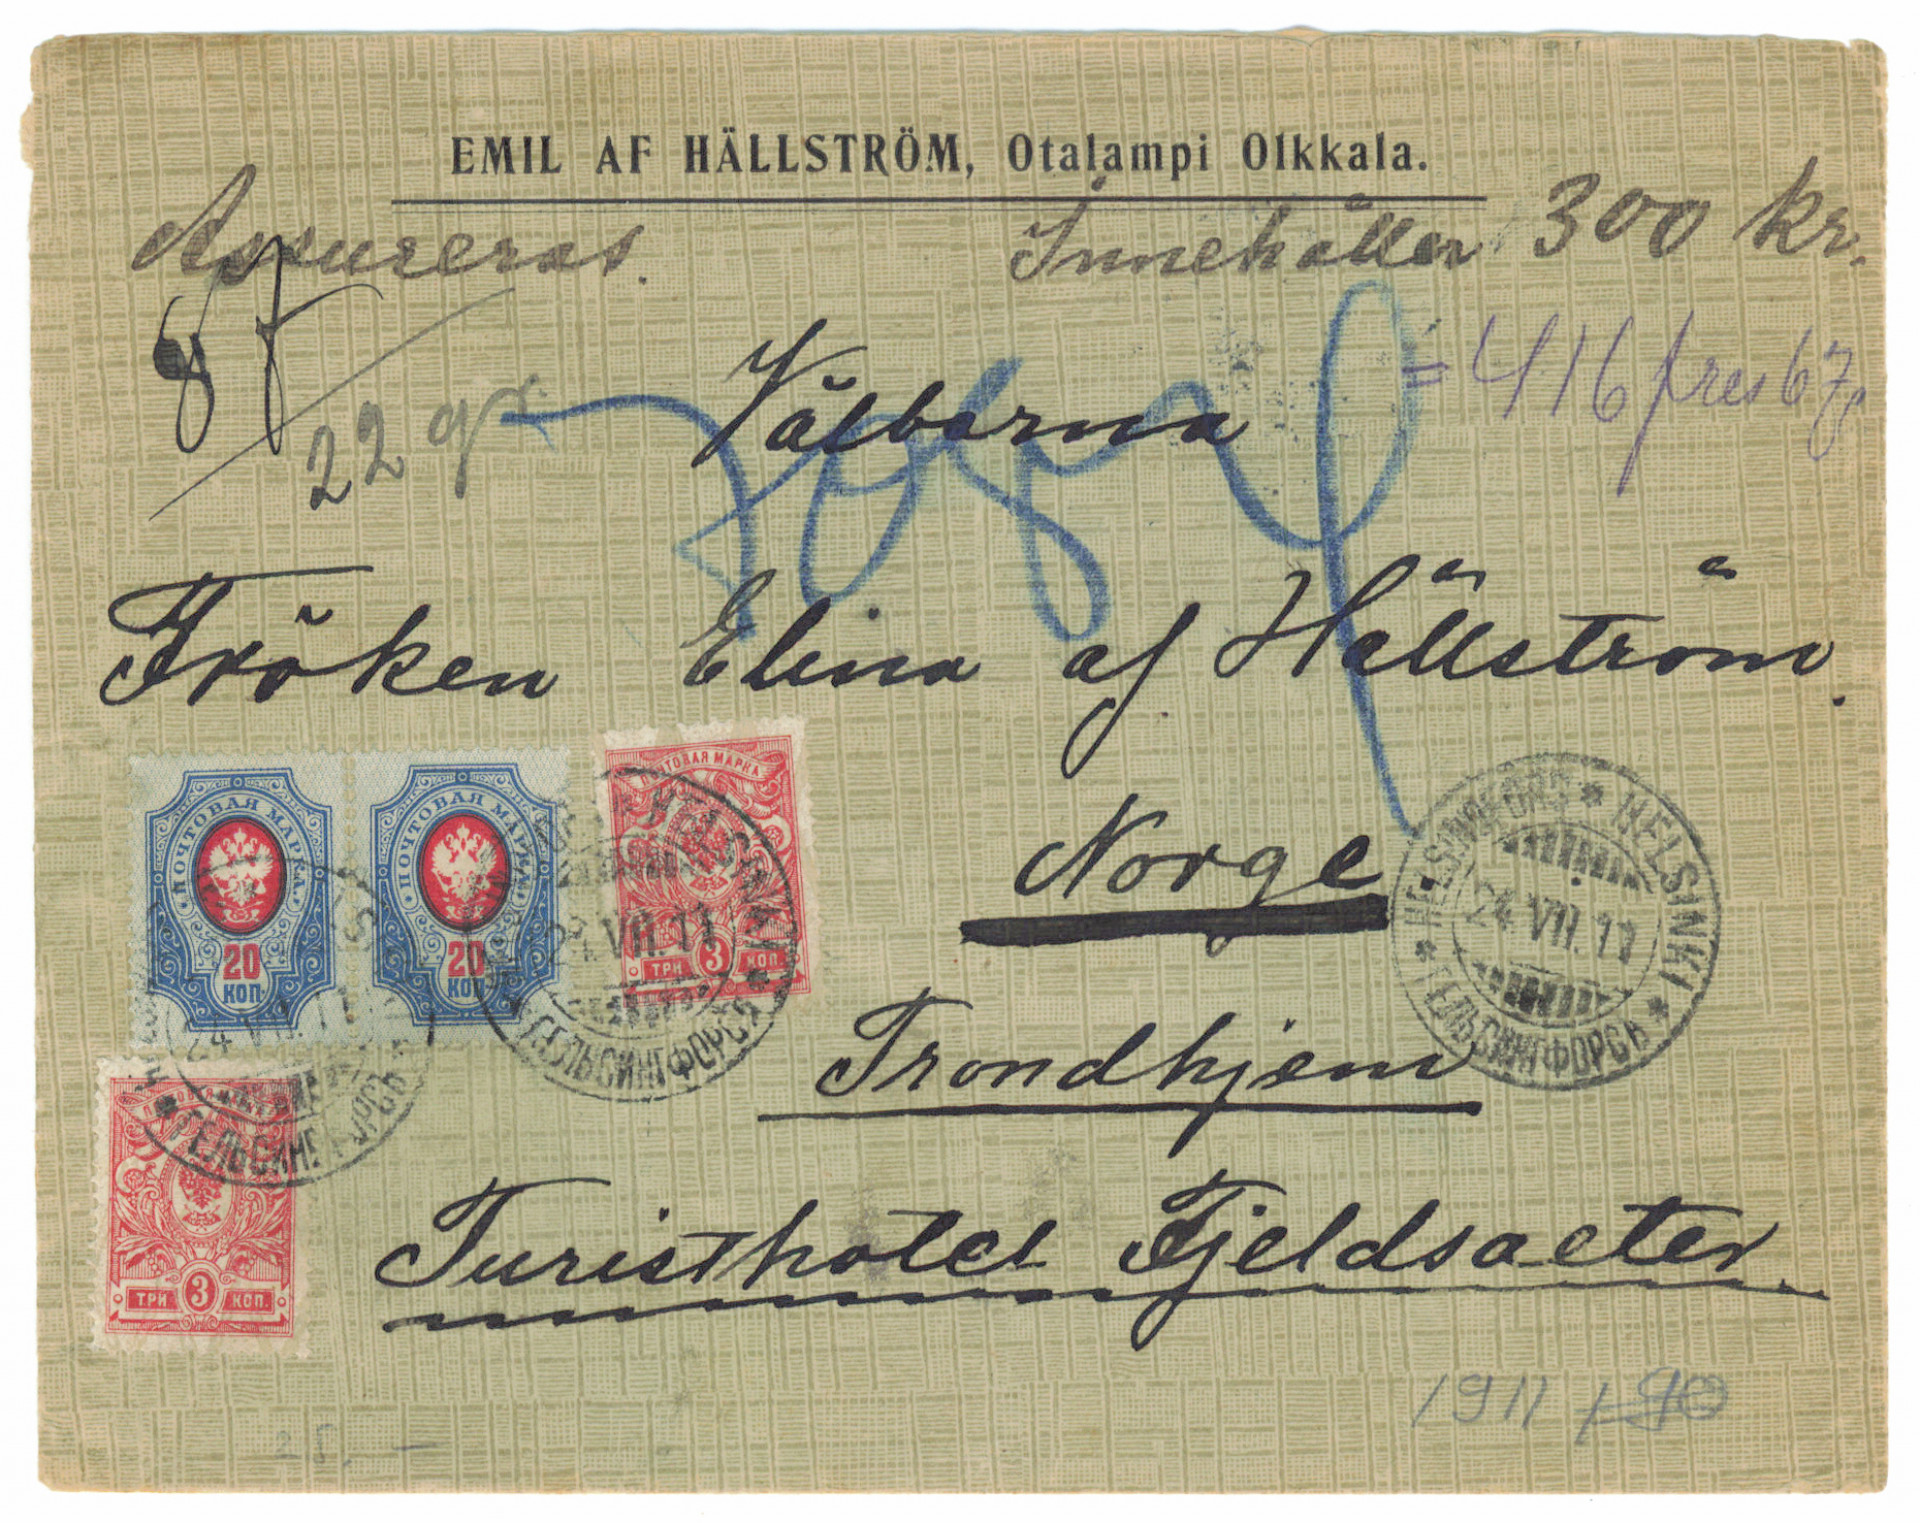 EMIL AF HÄLLSTRÖM, Otalampi Olkkala.
Assureras. Innehåller 300 kr.
87
22 gr
= 416 fres 67
Välborna
Fröken Elina af Hällström.
Norge
Trondhjem
Turisthotel Fjeldsaeter
ПОЧТОВАЯ МАРКА
20
КОП
ПОЧТОВАЯ МАРКА
20
КОП
ПОЧТОВАЯ МАРКА
ТРИ 3 КОП.
HELSINKI
24.VII.11
ГЕЛЬСИНГФОРСЪ
HELSINGFORS * HELSINKI
24.VII.11
* ГЕЛЬСИНГФОРСЪ *
24.VII.11
ГЕЛЬСИНГФОРСЪ
ПОЧТОВАЯ МАРКА
ТРИ 3 КОП.
1911
25.-